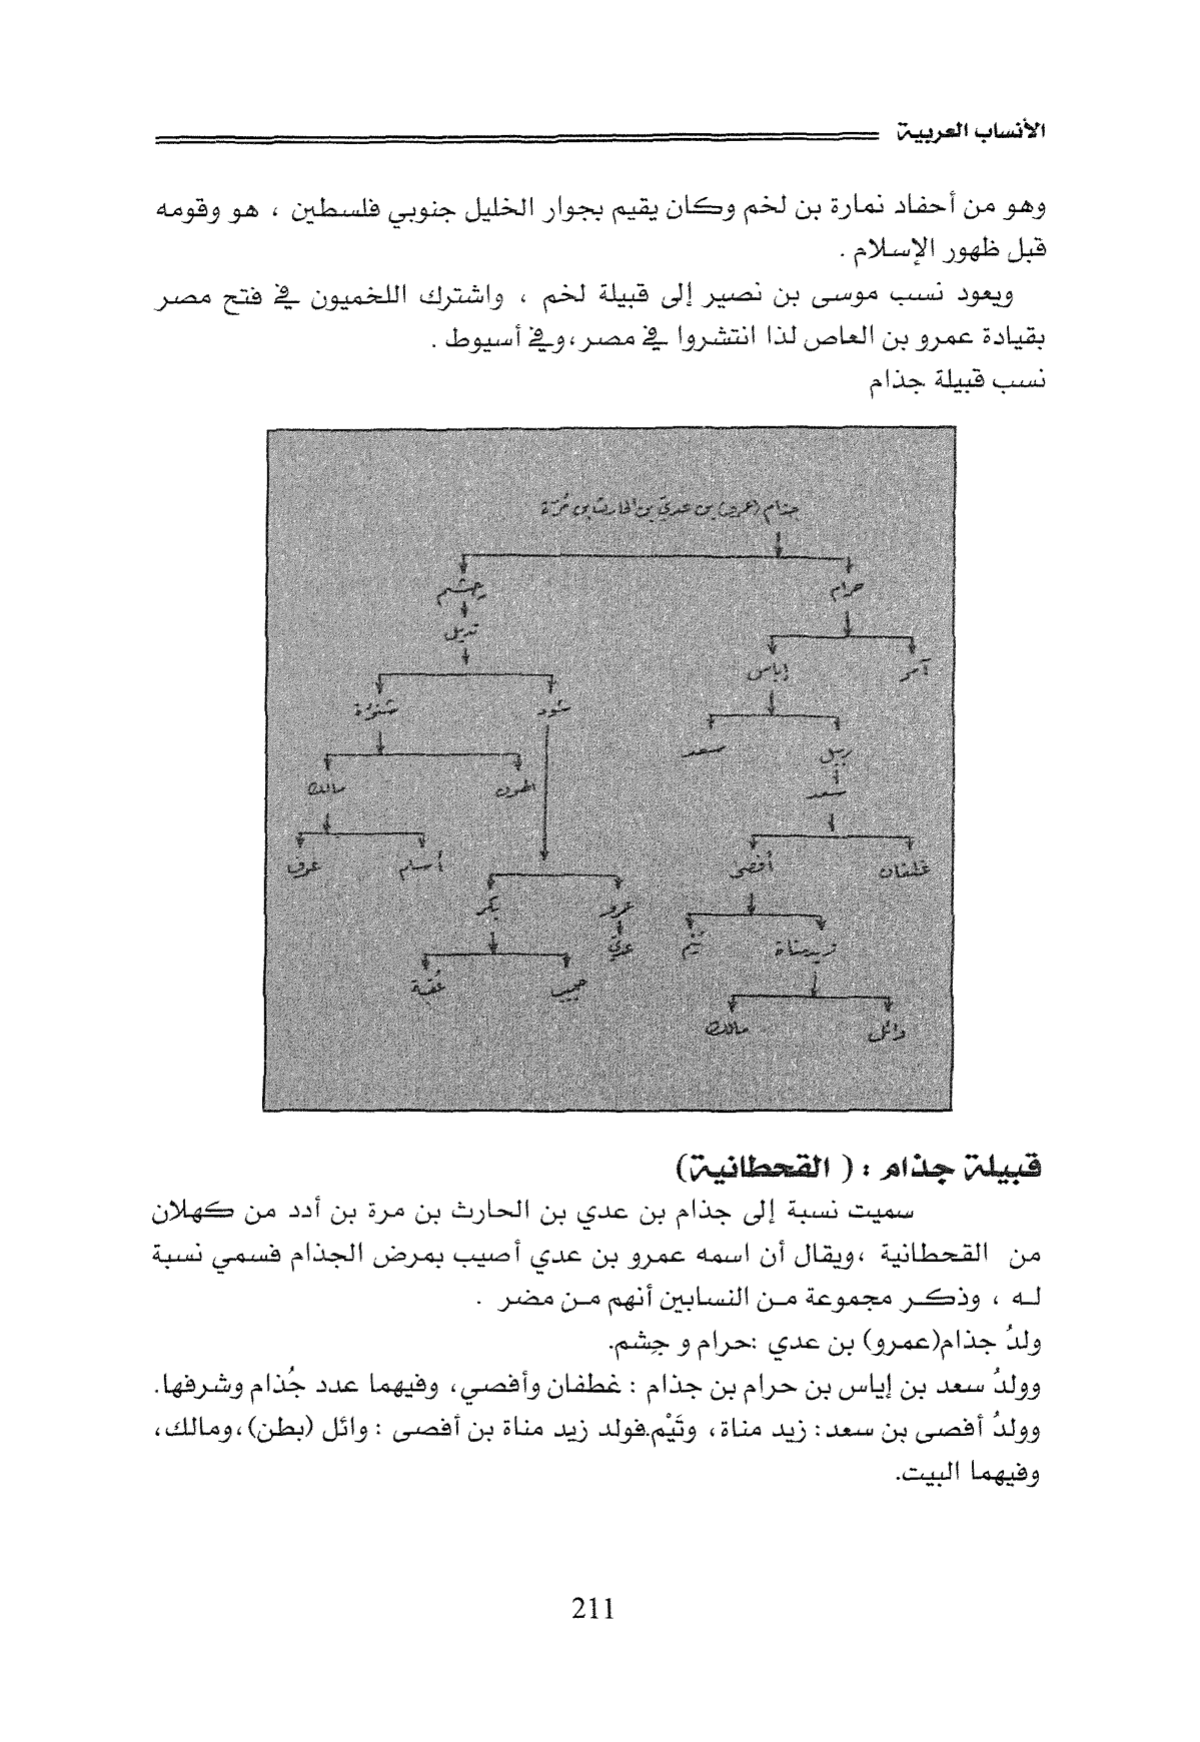 الأنساب العربية
وهو من أحفاد نمارة بن لخم وكان يقيم بجوار الخليل جنوبي فلسطين ، هو وقومه
قبل ظهور الإسلام .
ويعود نسب موسى بن نصير إلى قبيلة لخم ، واشترك اللخميون في فتح مصر
بقيادة عمرو بن العاص لذا انتشروا في مصر،وفي أسيوط .
نسب قبيلة جذام
جذام (عمرو) بن عديّ بن الحارث بن مُرّة
حرام جشم
تديل
آمر إياس
شود شنؤة
ربيل سعد
الهون مالك
سعد
غطفان أفصى أسلم عوف
عمرو بكر
زيد مناة تيم عديّ
حبيب عُقبة
وائل مالك
قبيلة جذام : ( القحطانية)
سميت نسبة إلى جذام بن عدي بن الحارث بن مرة بن أدد من كهلان
من القحطانية ،ويقال أن اسمه عمرو بن عدي أصيب بمرض الجذام فسمي نسبة
له ، وذكر مجموعة من النسابين أنهم من مضر .
ولدُ جذام(عمرو) بن عدي :حرام و جِشم.
وولدُ سعد بن إياس بن حرام بن جذام : غطفان وأفصي، وفيهما عدد جُذام وشرفها.
وولدُ أفصى بن سعد: زيد مناة، وتَيْم.فولد زيد مناة بن أفصى : وائل (بطن)،ومالك،
وفيهما البيت.
211